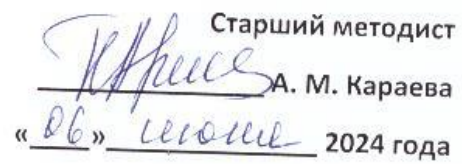 Старший методист
А. М. Караева
«06» июня 2024 года